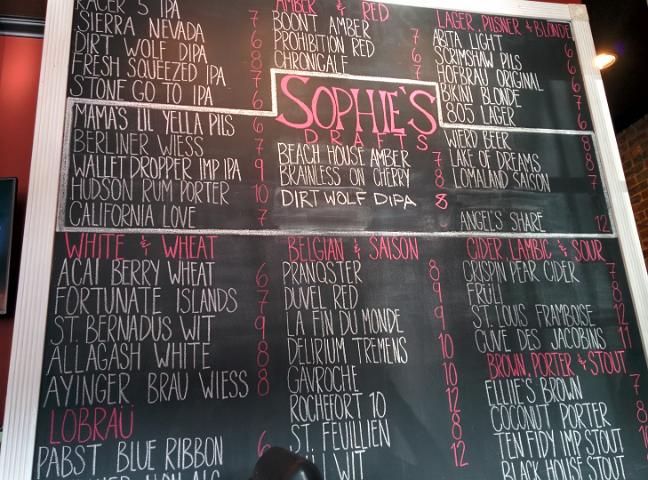 RACER 5 IPA 7
SIERRA NEVADA 6
DIRT WOLF DIPA 8
FRESH SQUEEZED IPA 7
STONE GO TO IPA 6
AMBER & RED
BOONT AMBER 7
PROHIBITION RED 6
CHRONICALE 7
LAGER, PILSNER & BLONDE
ABITA LIGHT 6
SCRIMSHAW PILS 6
HOFBRAU ORIGINAL 6
BIKINI BLONDE
805 LAGER
SOPHIE'S
DRAFTS
MAMA'S LIL YELLA PILS 6
BERLINER WIESS 7
WALLET DROPPER IMP IPA 9
HUDSON RUM PORTER 10
CALIFORNIA LOVE 7
BEACH HOUSE AMBER 7
BRAINLESS ON CHERRY 8
DIRT WOLF DIPA 8
WIERD BEER 8
LAKE OF DREAMS 8
LOMALAND SAISON 7
ANGEL'S SHARE 12
WHITE & WHEAT
ACAI BERRY WHEAT 6
FORTUNATE ISLANDS 7
ST. BERNADUS WIT 9
ALLAGASH WHITE 8
AYINGER BRAU WIESS 8
LOBRAÜ
PABST BLUE RIBBON
BELGIAN & SAISON
PRANQSTER 8
DUVEL RED 9
LA FIN DU MONDE 9
DELIRIUM TREMENS 10
GAVROCHE 10
ROCHEFORT 10 12
ST. FEUILLIEN 8
WIT 12
CIDER, LAMBIC & SOUR
CRISPIN PEAR CIDER 7
FRÜLI 8
ST. LOUIS FRAMBOISE 12
CUVE DES JACOBINS 11
BROWN, PORTER & STOUT
ELLIE'S BROWN 7
COCONUT PORTER 8
TEN FIDY IMP STOUT
BLACK HOUSE STOUT